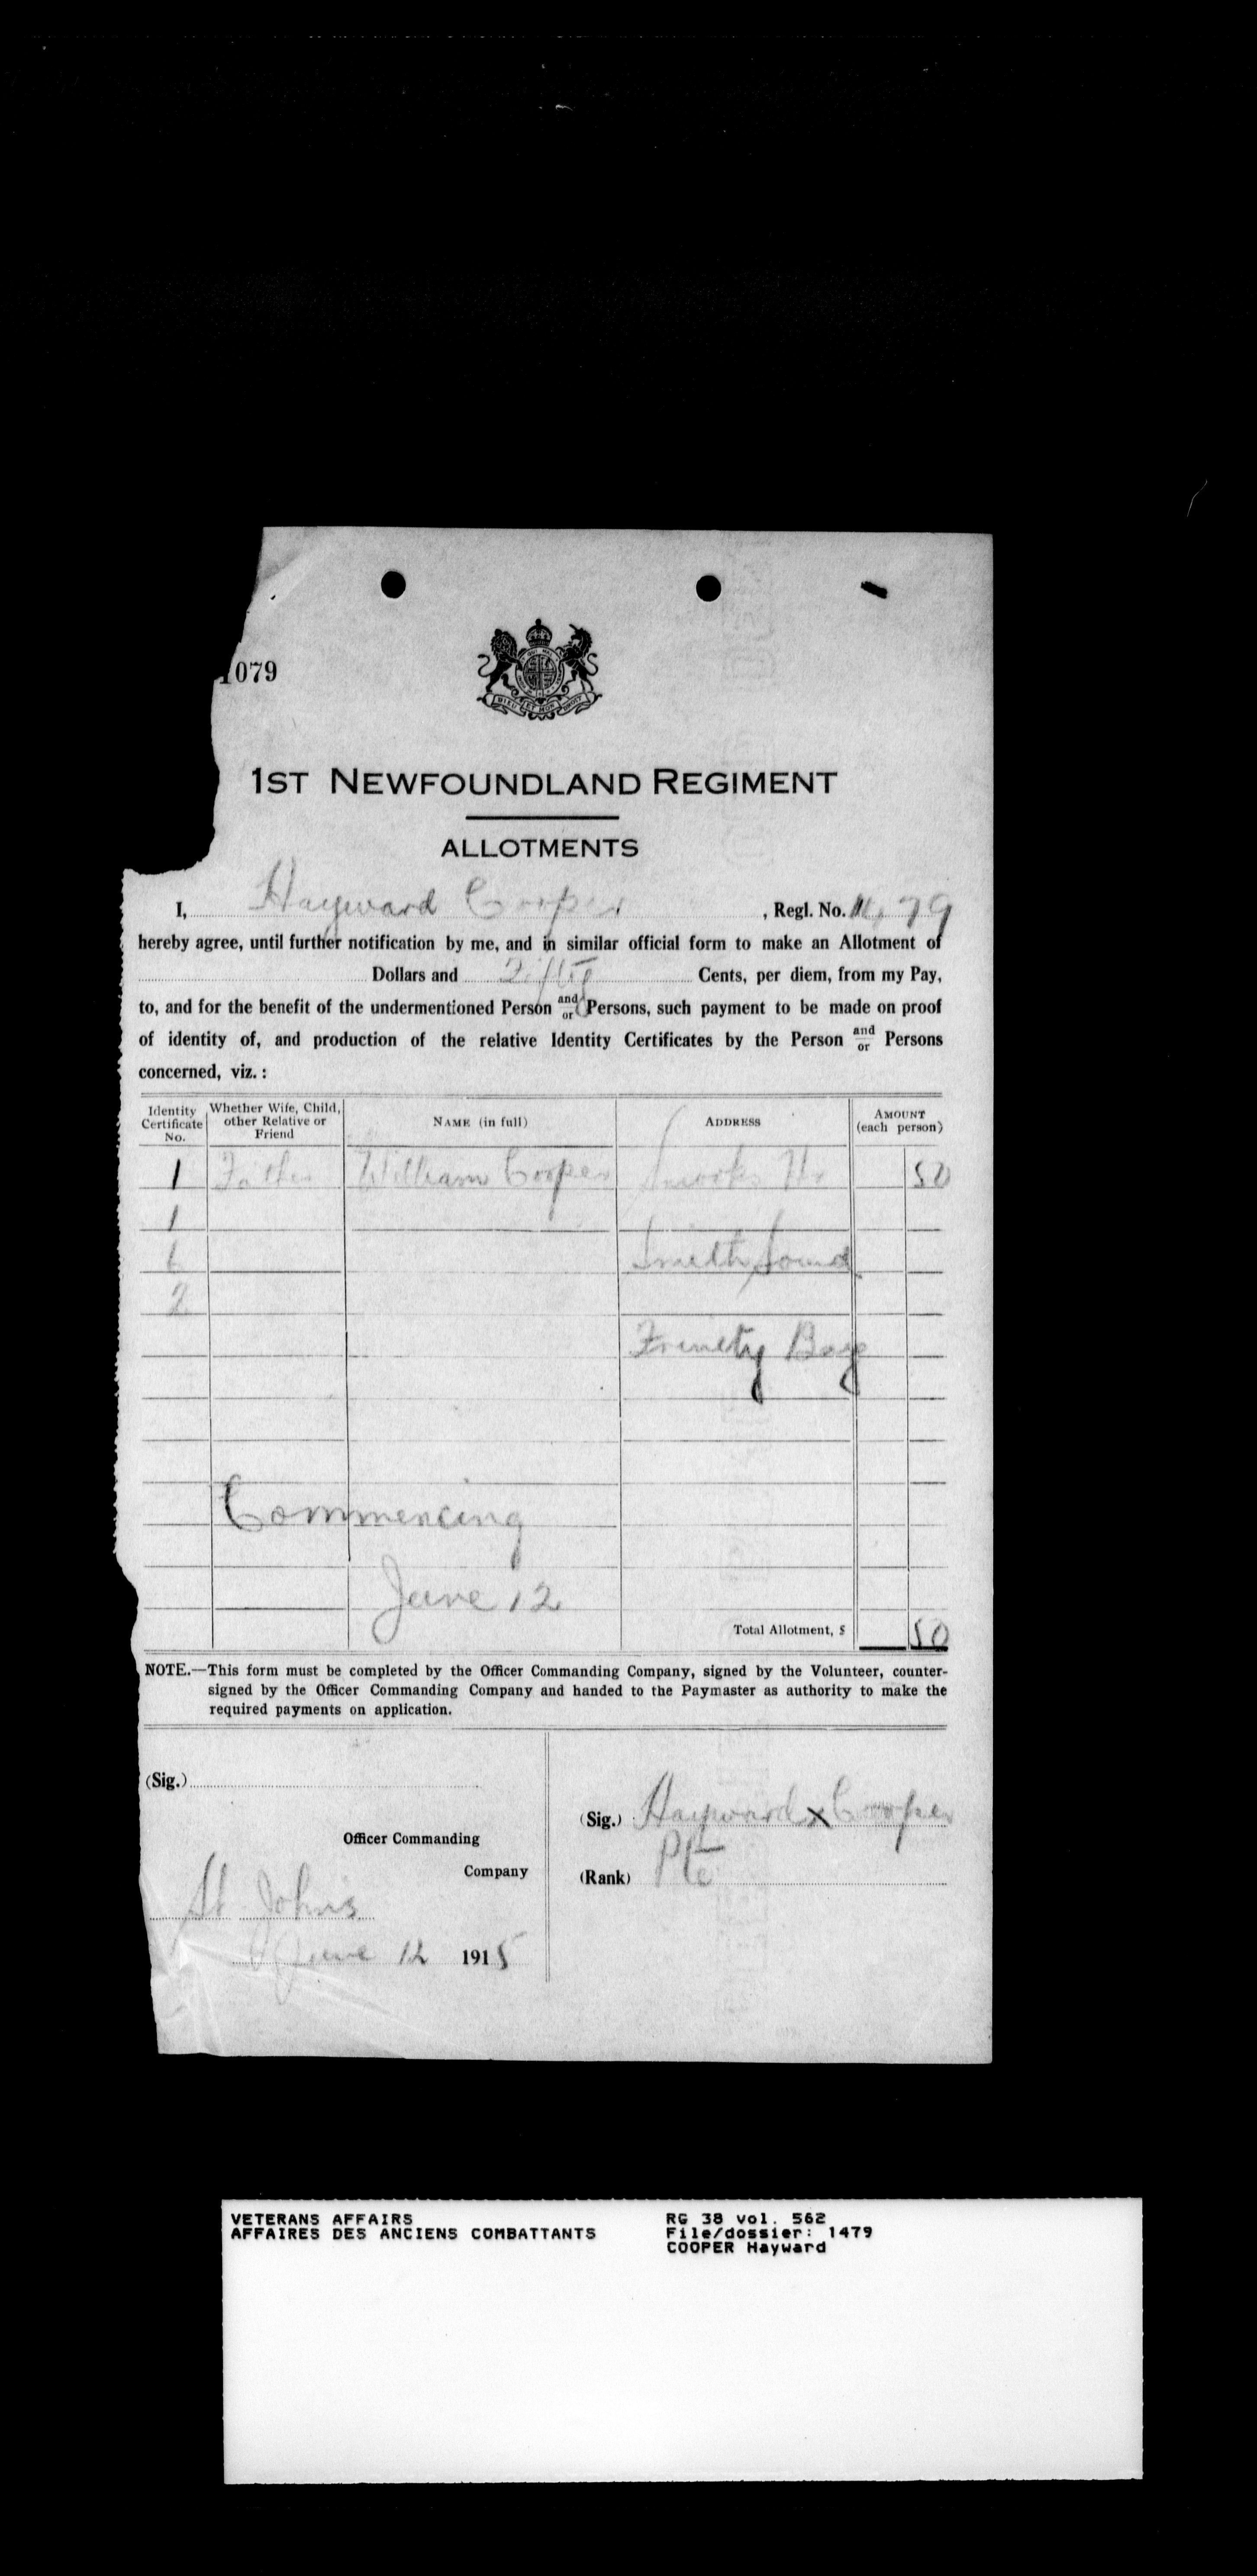 1079
DIEU ET MON DROIT
1ST NEWFOUNDLAND REGIMENT
ALLOTMENTS
I, Hayward Cooper, Regl. No. 1479
hereby agree, until further notification by me, and in similar official form to make an Allotment of
Dollars and Fifty Cents, per diem, from my Pay,
to, and for the benefit of the undermentioned Person and/or Persons, such payment to be made on proof
of identity of, and production of the relative Identity Certificates by the Person and/or Persons
concerned, viz.:
Identity Certificate No. Whether Wife, Child, other Relative or Friend NAME (in full) ADDRESS AMOUNT (each person)
1 Father William Cooper Snooks Hr 50
1
6 Smith Sound
2
Trinity Bay
Commencing
June 12
Total Allotment, $ 50
NOTE.—This form must be completed by the Officer Commanding Company, signed by the Volunteer, counter-
signed by the Officer Commanding Company and handed to the Paymaster as authority to make the
required payments on application.
(Sig.)
Officer Commanding
Company
St Johns
June 12 1915
(Sig.) Hayward x Cooper
(Rank) Pte
VETERANS AFFAIRS
AFFAIRES DES ANCIENS COMBATTANTS
RG 38 vol. 562
File/dossier: 1479
COOPER Hayward